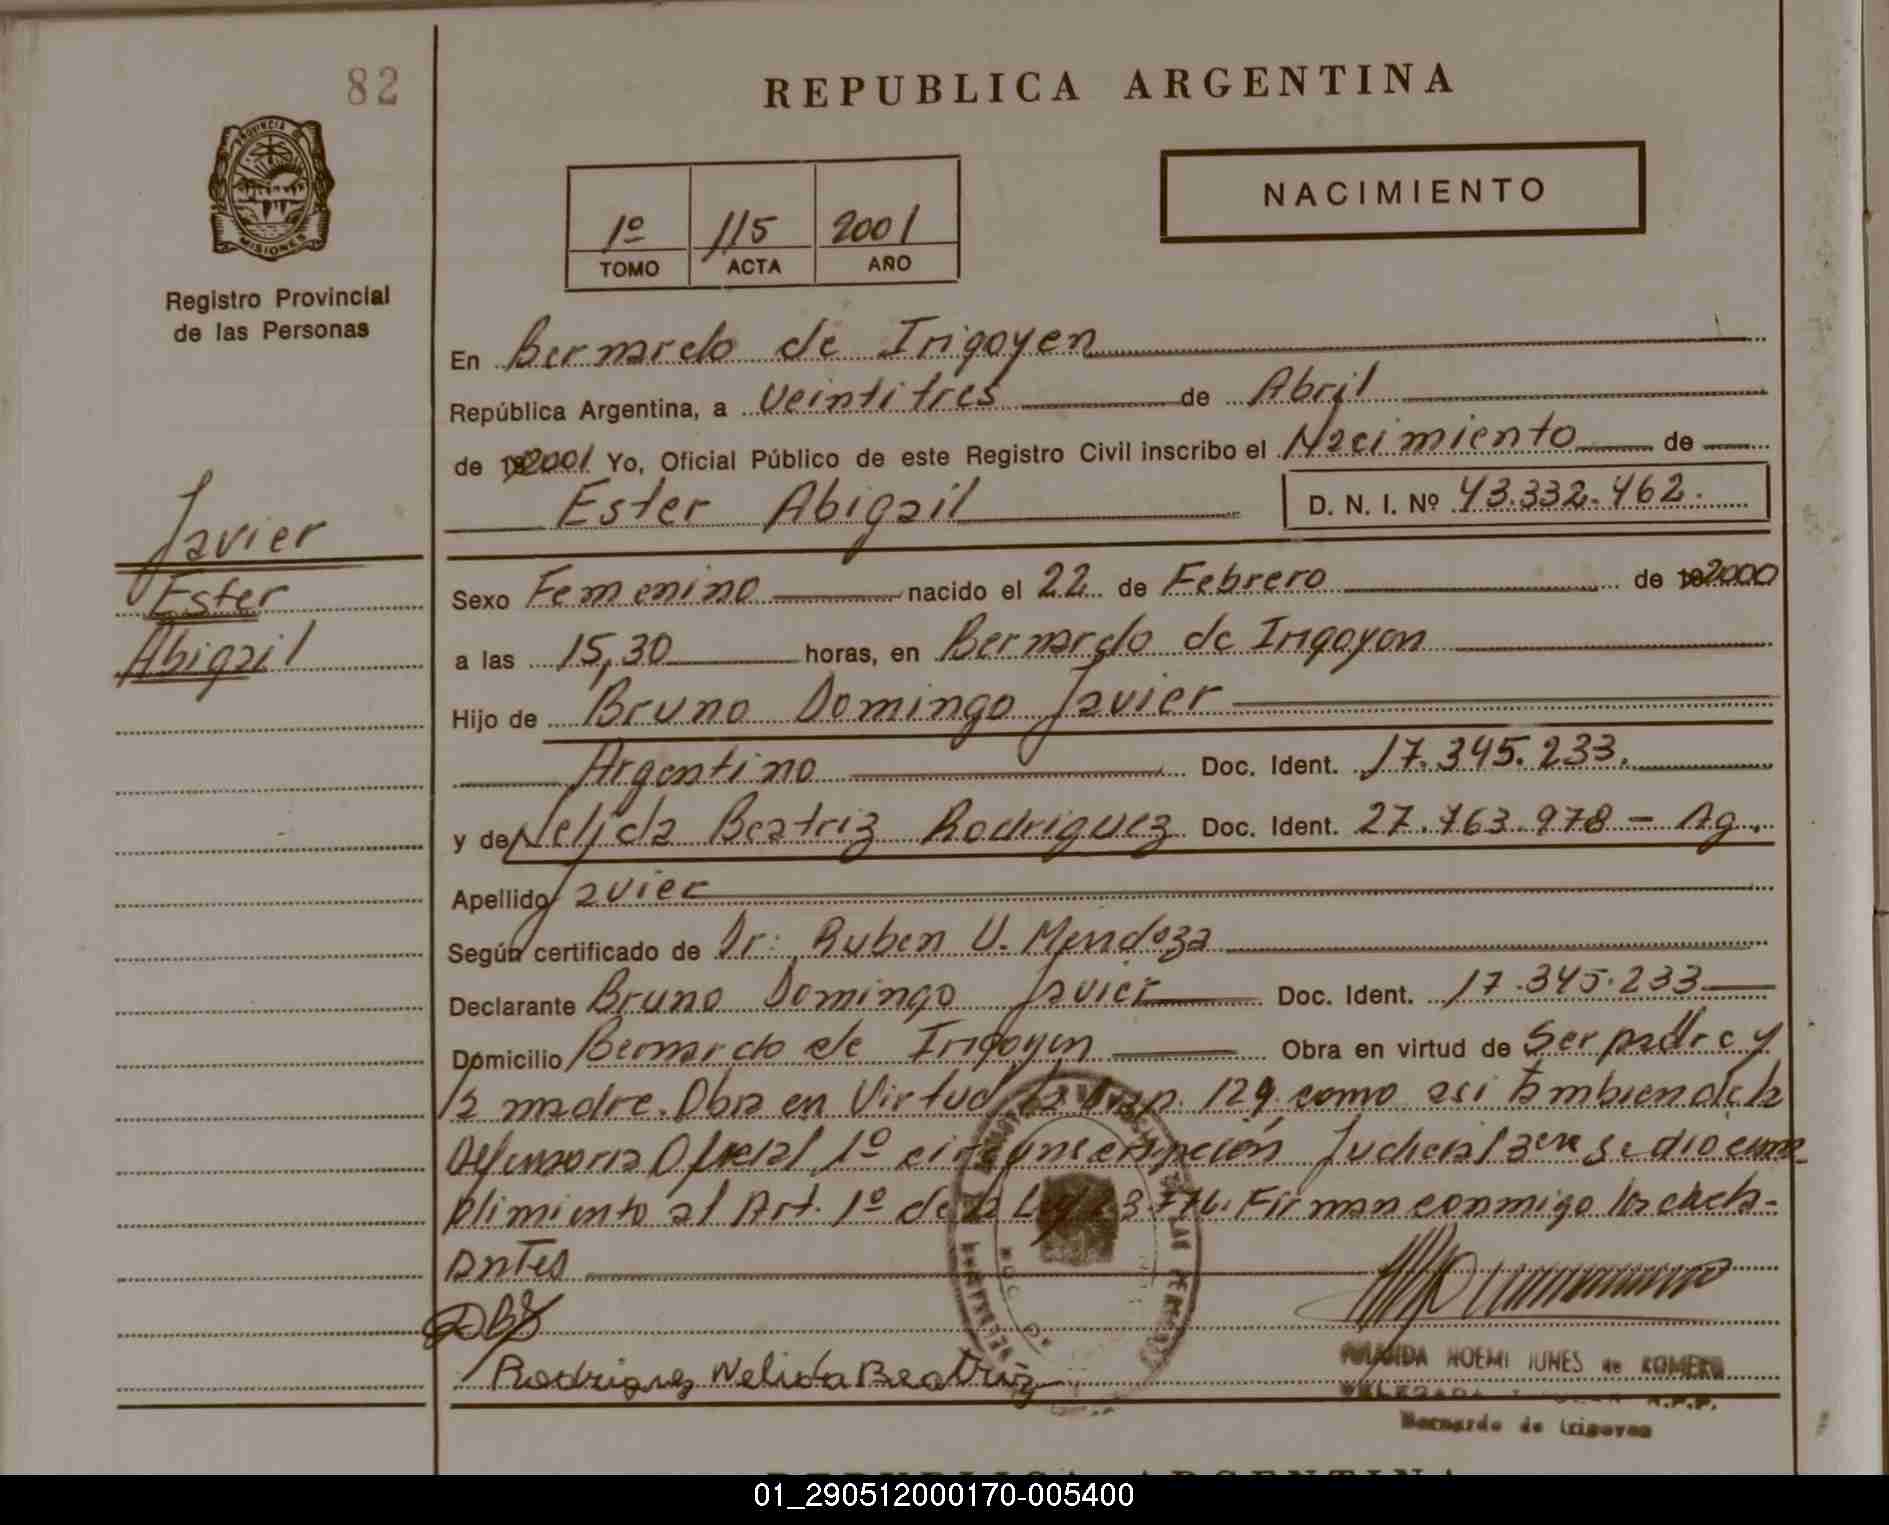 82
REPUBLICA ARGENTINA
PROVINCIA DE
MISIONES
NACIMIENTO
1º 115 2001
TOMO ACTA AÑO
Registro Provincial
de las Personas
En Bernardo de Irigoyen
República Argentina, a Veintitres de Abril
de 2001 Yo, Oficial Público de este Registro Civil inscribo el Nacimiento de
Ester Abigail D. N. I. Nº 43.332.462.
Javier
Ester
Abigail
Sexo Femenino nacido el 22 de Febrero de 2000
a las 15,30 horas, en Bernardo de Irigoyen
Hijo de Bruno Domingo Javier
Argentino Doc. Ident. 17.345.233.
y de Nelida Beatriz Rodriguez Doc. Ident. 27.763.978 - Ag.
Apellido Javier
Según certificado de Dr. Ruben U. Mendoza
Declarante Bruno Domingo Javier Doc. Ident. 17.345.233
Domicilio Bernardo de Irigoyen Obra en virtud de Ser padre y
la madre. Obra en Virtud la Disp. 129 como asi tambien de la
Defensoria Oficial 1º circunscripción Judicial se dio cum
plimiento al Art. 1º de la Ley 23.776. Firman conmigo los
antes
DBJ
Rodrigues Nelida Beatriz
NOEMI IUNES de ROMERO
DELEGADA R.P.P.
Bernardo de Irigoyen
REPUBLICA ARGENTINA
01_290512000170-005400